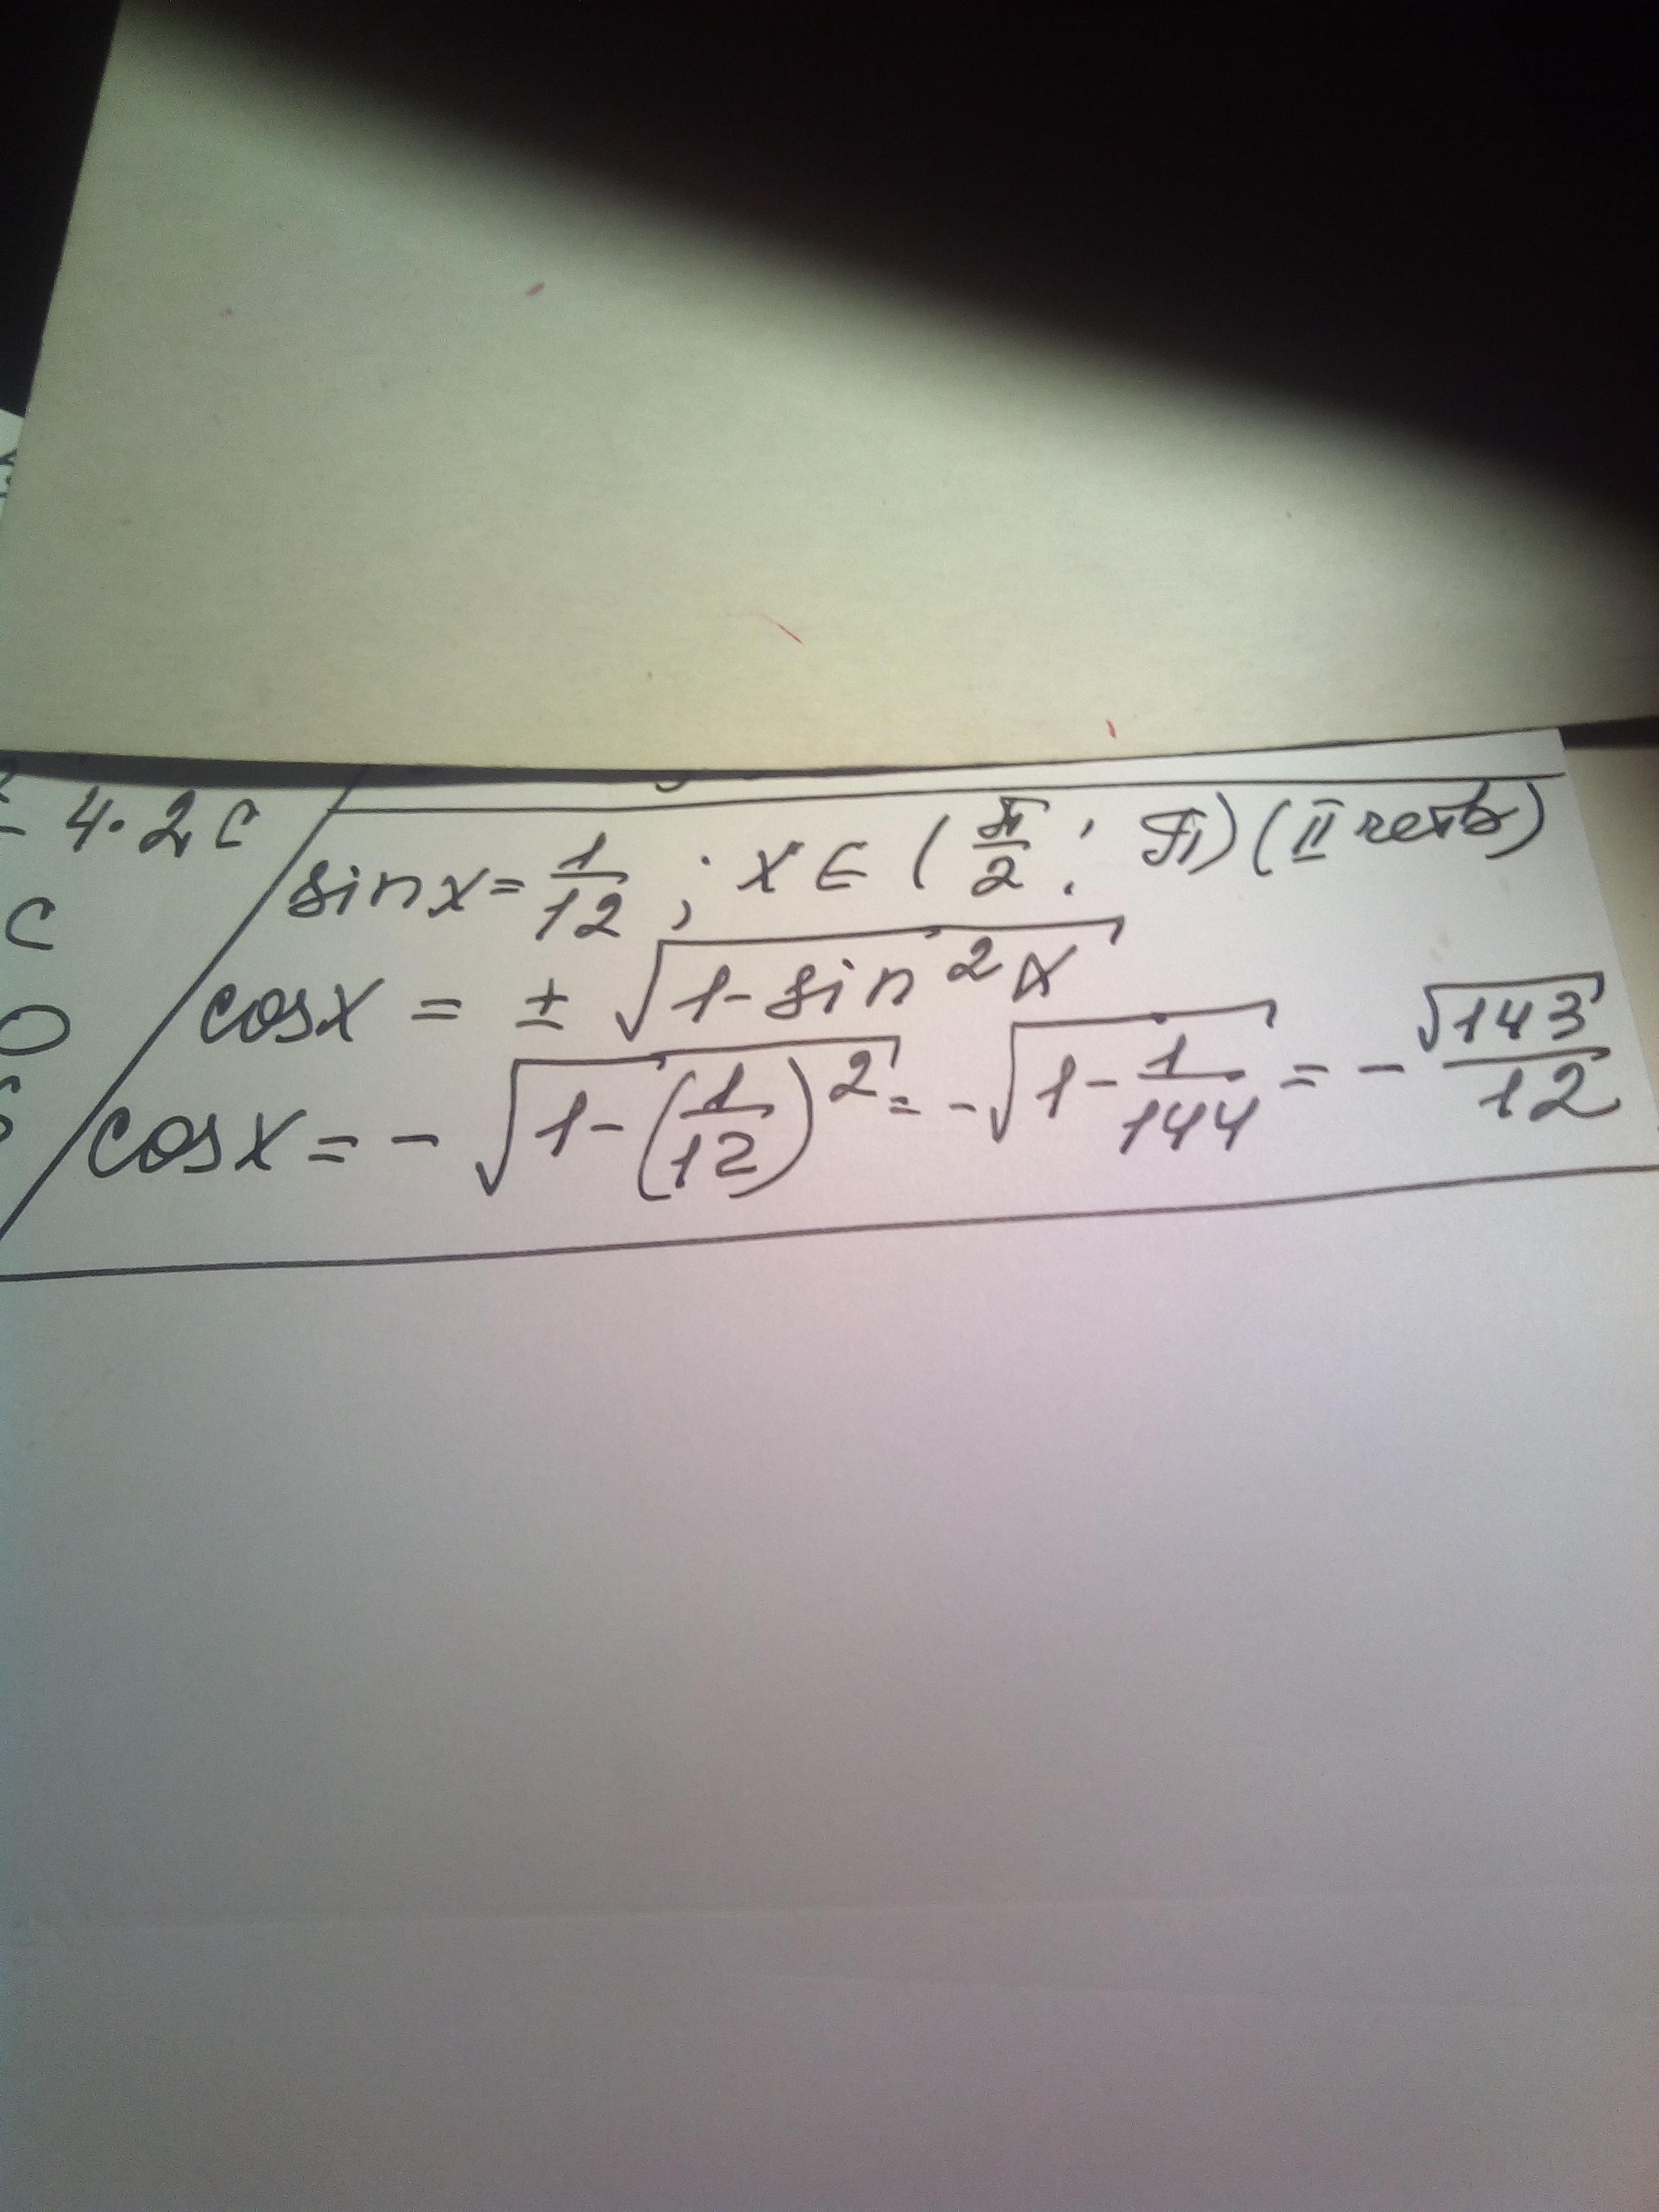 4·2c
sinx = 1/12 ; x ∈ (π/2 ; π) (II четв)
c
cosx = ± √(1 - sin²x)
cosx = - √(1 - (1/12)²) = - √(1 - 1/144) = - √143/12